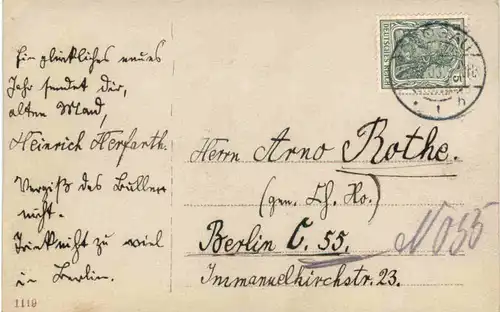 Ein glückliches neues
Jahr sendet dir,
alten
Heinrich Herfarth.
Vergiß das
nicht.
Trink nicht zu viel
in Berlin.
1119
DEUTSCHES REICH
5
Herrn Arno Rothe.
(gen. Ch. Ho.)
Berlin C. 55.
Immanuelkirchstr. 23.
N 055